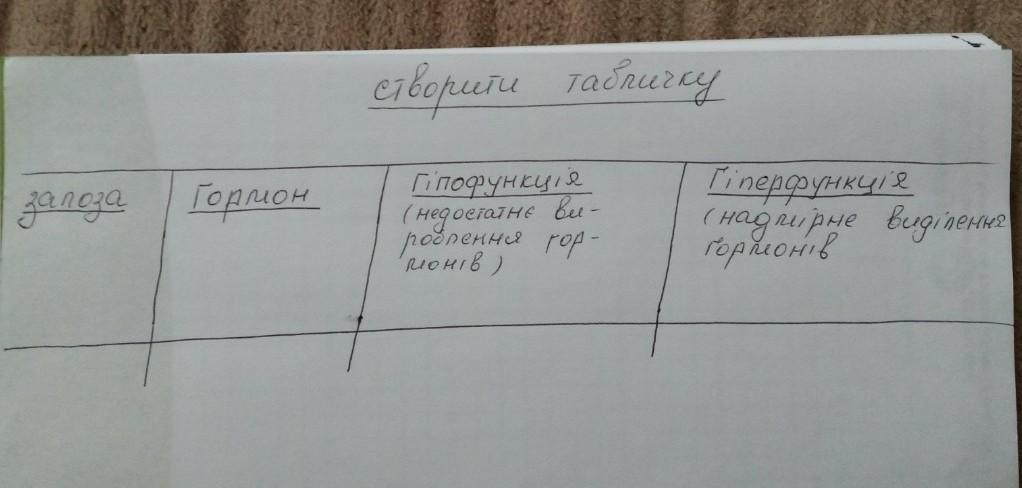 створити табличку
залоза
Гормон
Гіпофункція
(недостатнє ви-
роблення гор-
монів)
Гіперфункція
(надмірне виділення
гормонів